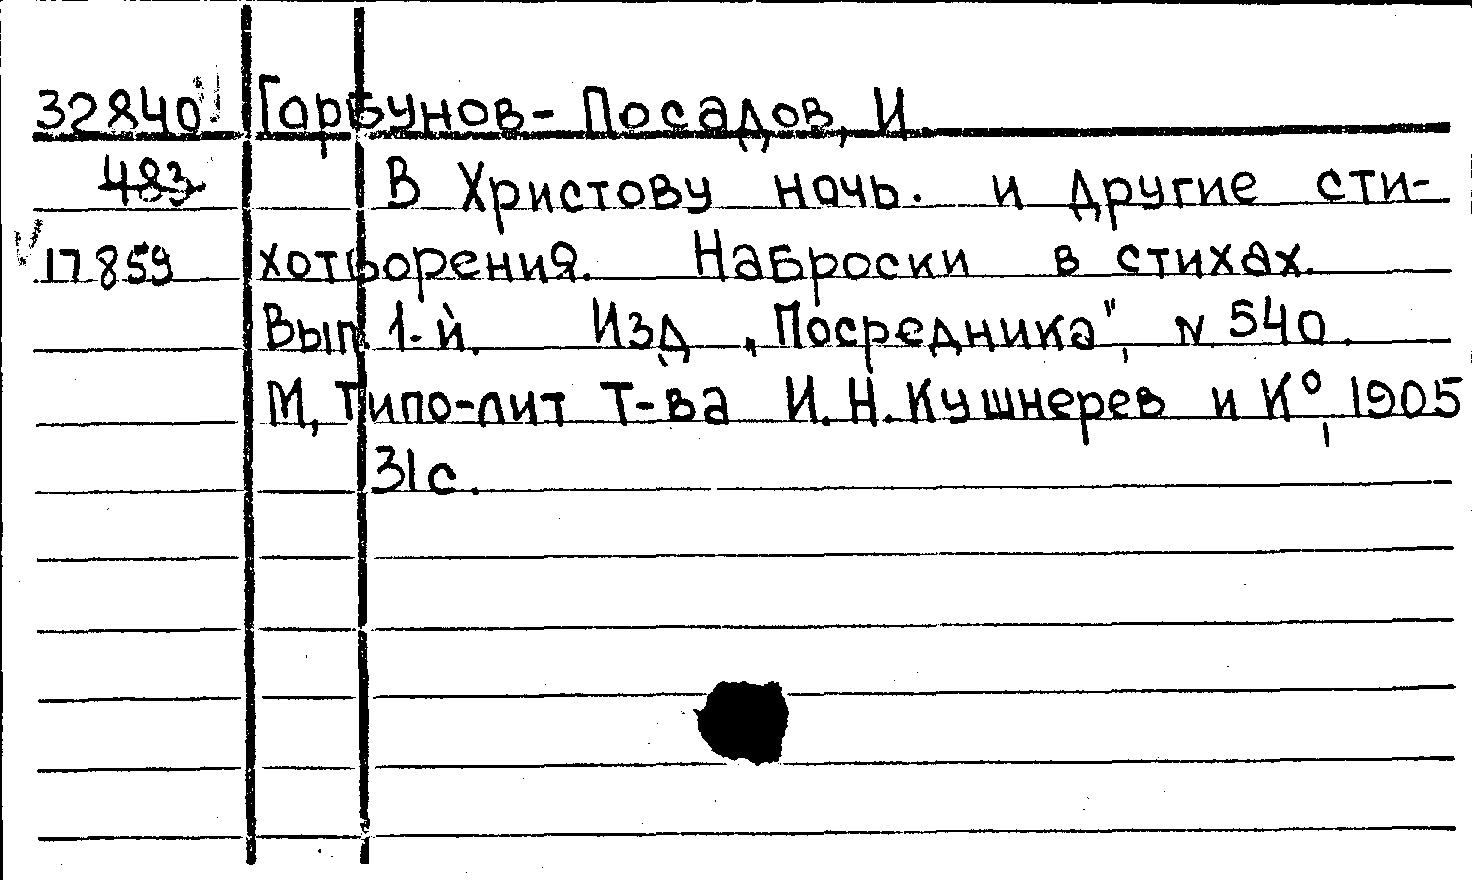 32840 Горбунов-Посадов, И.
483 В Христову ночь. и другие сти-
17859 хотворения. Наброски в стихах.
Вып. 1-й. Изд. „Посредника", N 540.
М, Типо-лит Т-ва И.Н.Кушнерев и К°, 1905
31с.